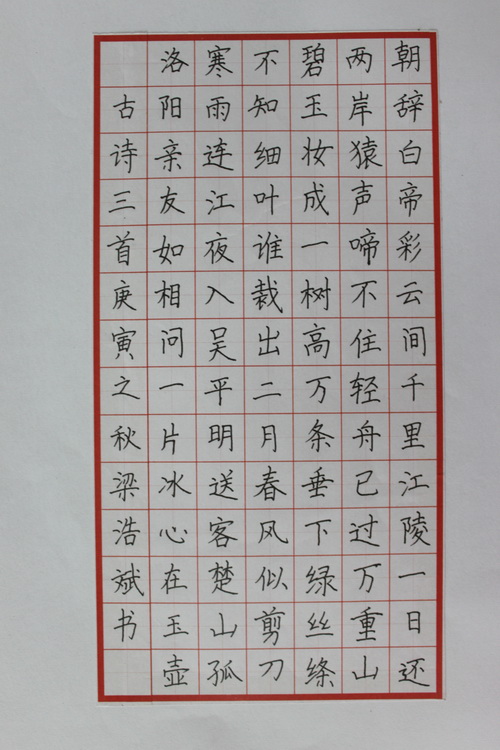 朝辞白帝彩云间千里江陵一日还
两岸猿声啼不住轻舟已过万重山
碧玉妆成一树高万条垂下绿丝绦
不知细叶谁裁出二月春风似剪刀
寒雨连江夜入吴平明送客楚山孤
洛阳亲友如相问一片冰心在玉壶
古诗三首庚寅之秋梁浩斌书